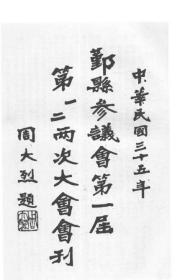 中華民國三十五年
鄞縣參議會第一屆
第一二兩次大會會刊
周大烈題